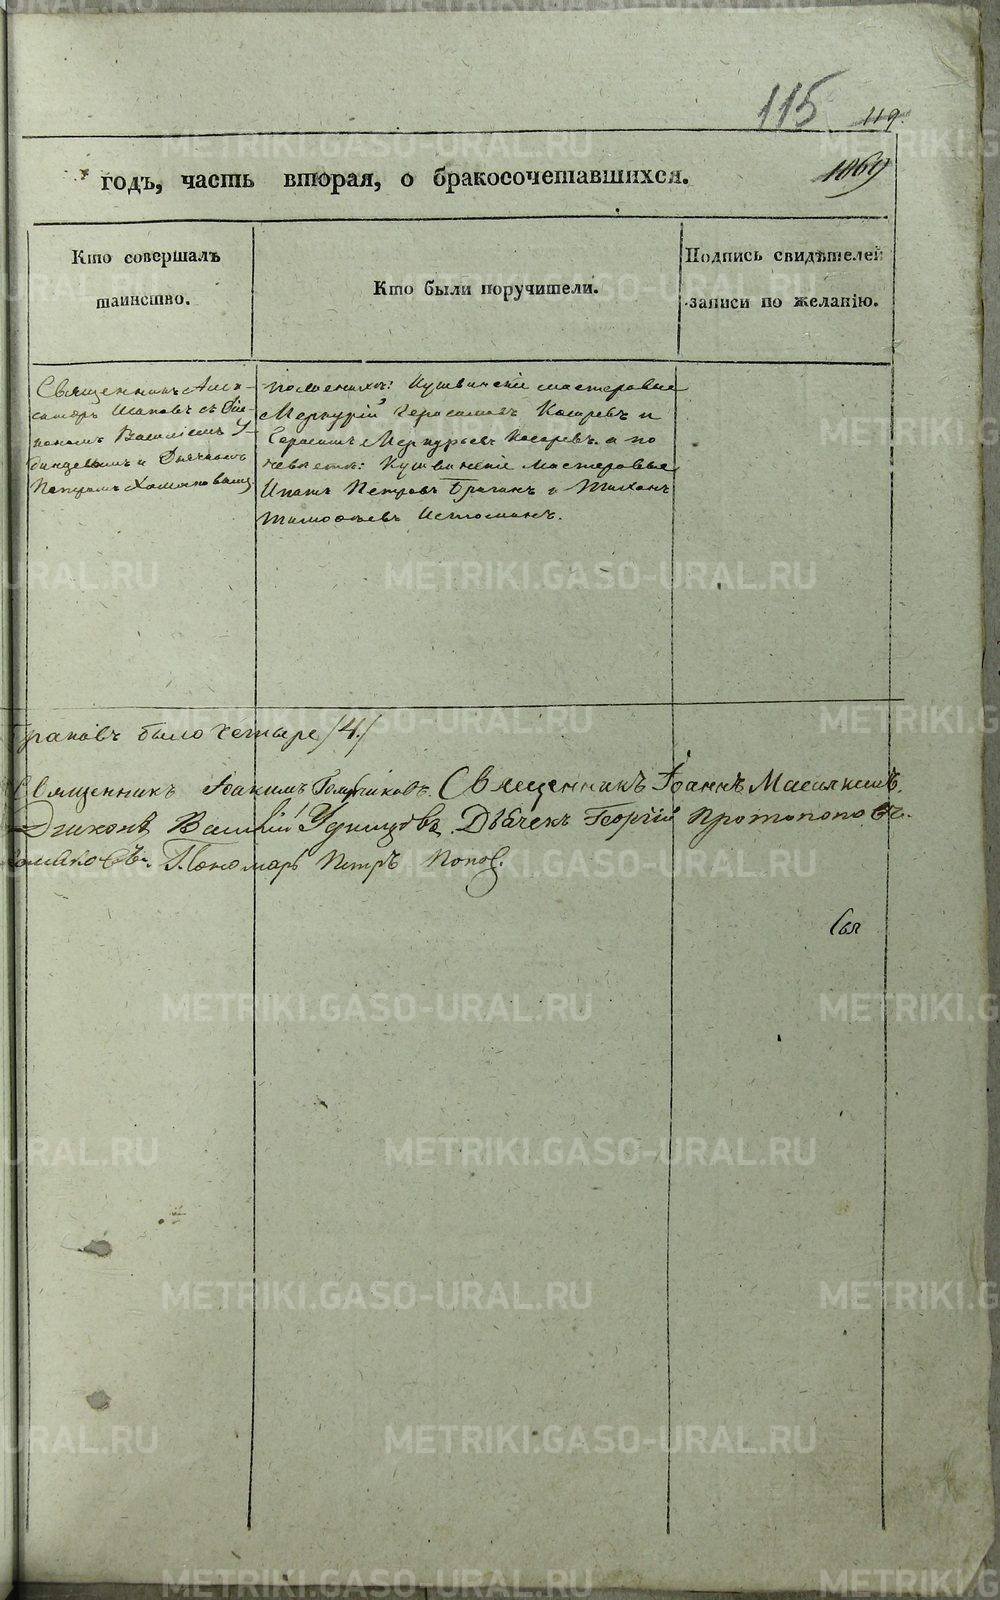 115 119.
годъ, часть вторая, о бракосочетавшихся.
1869
Кто совершалъ таинство.
Кто были поручители.
Подпись свидѣтелей записи по желанію.
Священникъ Алек-
сандръ Шаповъ съ Діа-
кономъ Василіемъ У-
динцевымъ и Дьячкомъ
Петромъ Хомяковымъ
По женихѣ: Кушвинскіе мастеровые
Меркурій Герасимовъ Косаревъ и
Герасимъ Меркурьевъ Косаревъ. а по
невѣстѣ: Кушвинскіе мастеровые
Ипатъ Петровъ и Тихонъ
Тимофѣевъ Истоминъ.
Браковъ было четыре /4./
Священникъ Іоакимъ Священникъ Іоаннъ
Діаконъ Василій Удинцовъ. Дьячекъ Георгій Протопоповъ.
Хомяковъ. Пономарь Петръ Попов.
METRIKI.GASO-URAL.RU